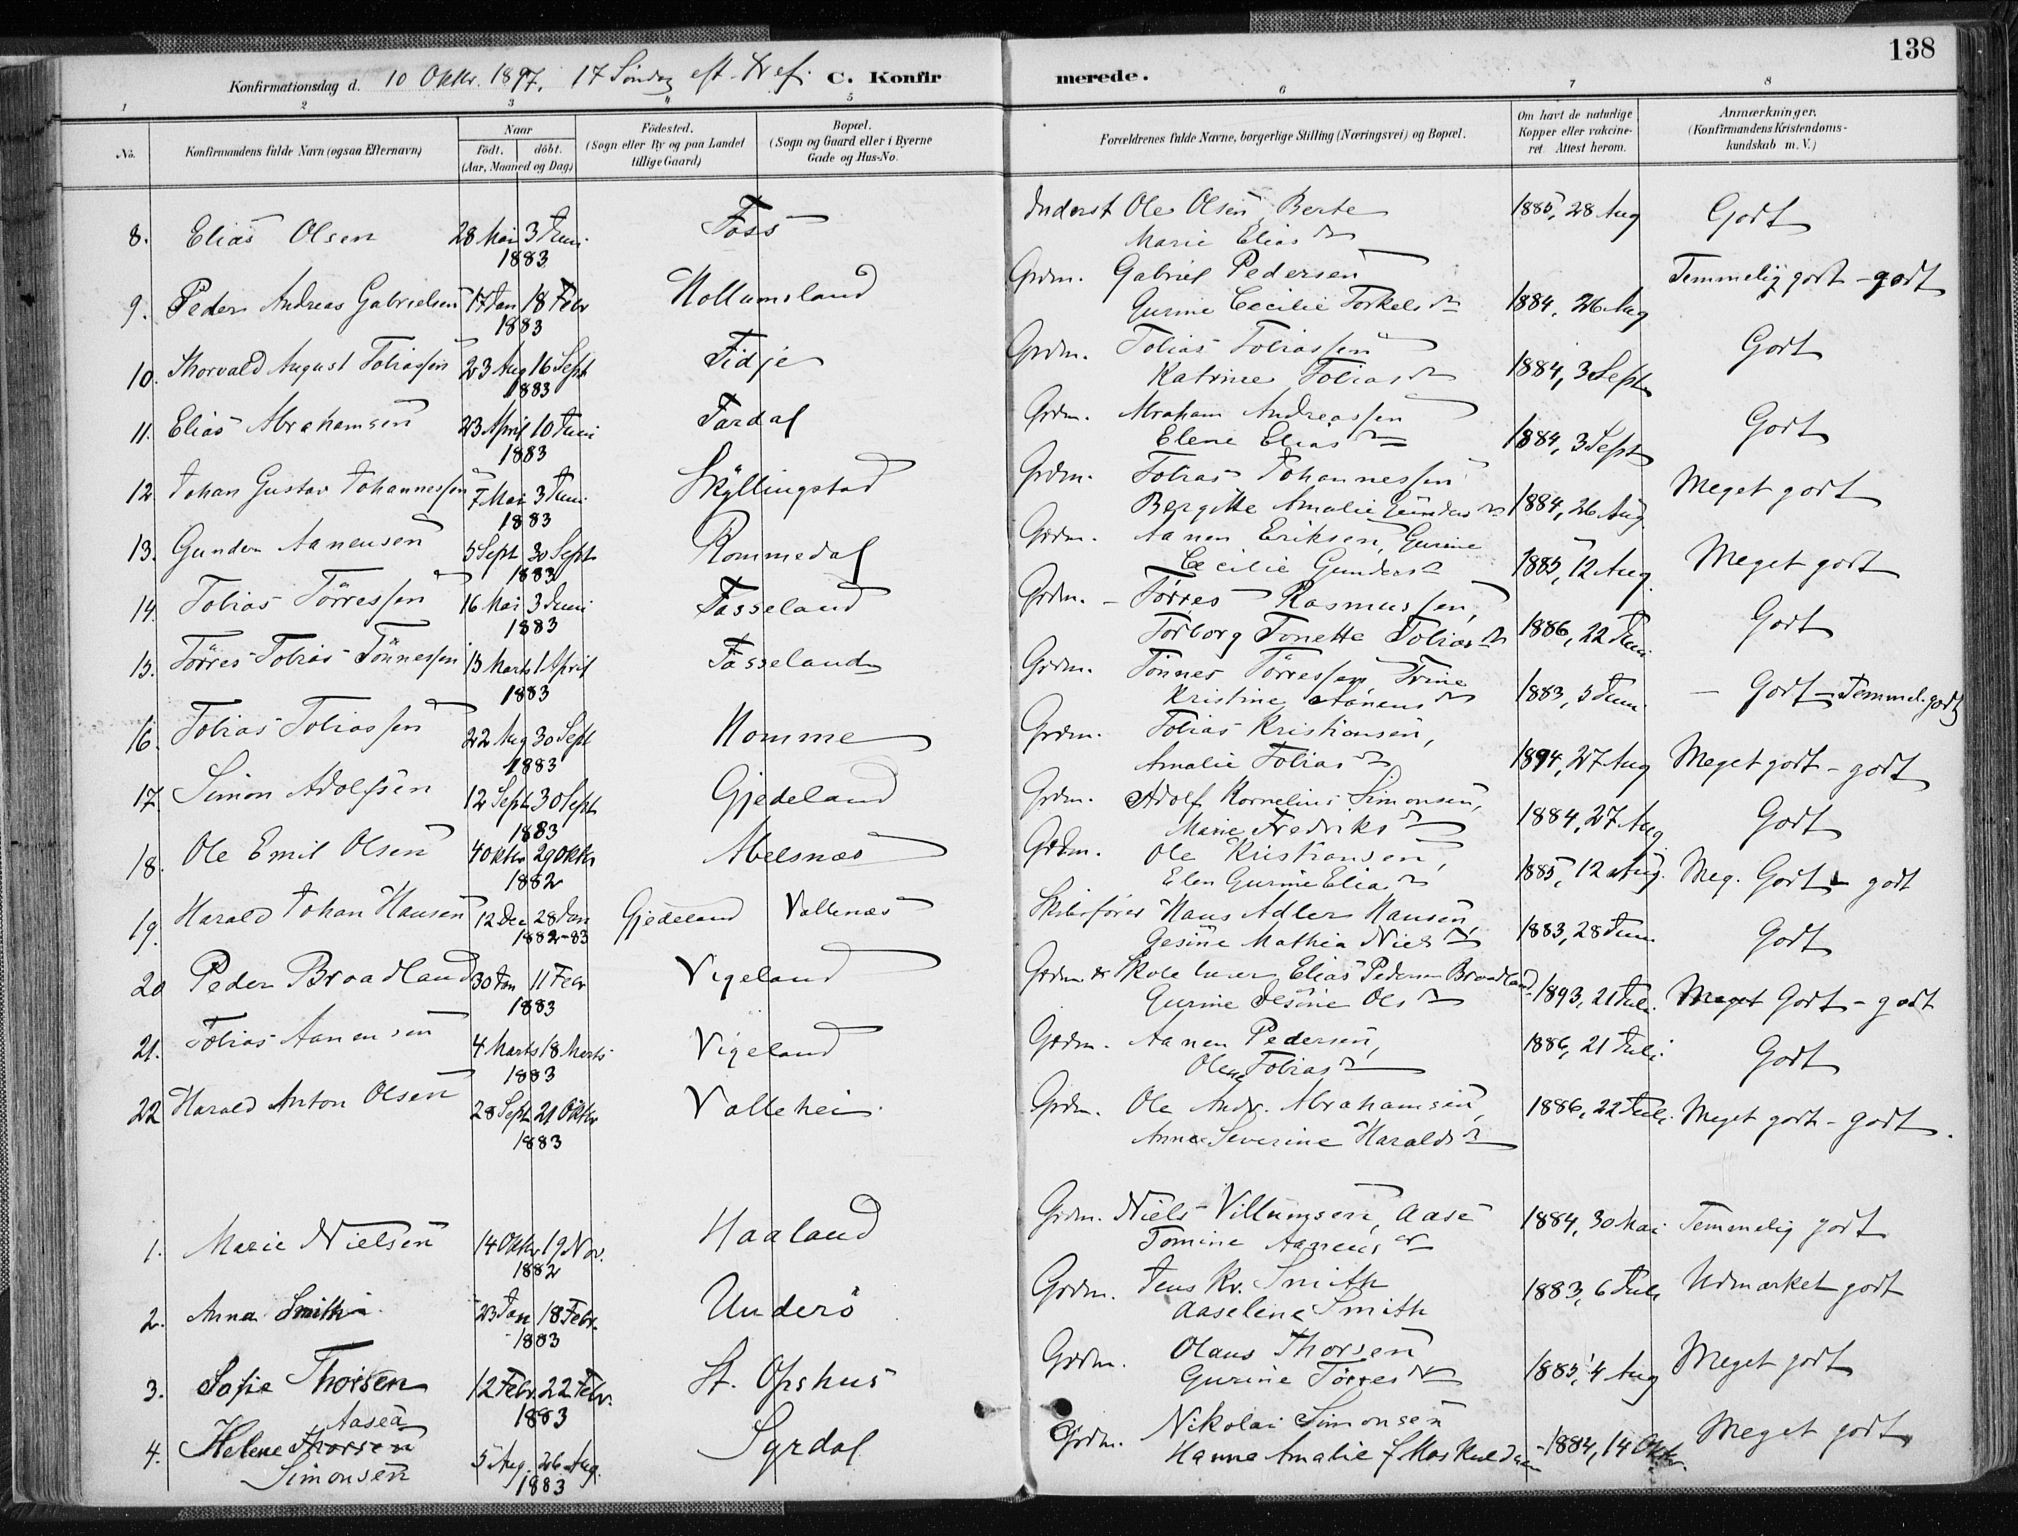 138
Konfirmationsdag d. 10 Oktbr. 1897. 17 Søndag eft. Tref. C. Konfir merede.
1 2 3 4 5 6 7 8
No. Konfirmandens fulde Navn (ogsaa Efternavn) Naar født. døbt. (Aar, Maaned og Dag) Fødested. (Sogn eller By og paa Landet tillige Gaard) Bopæl. (Sogn og Gaard eller i Byerne Gade og Hus-No. Forældrenes fulde Navne, borgerlige Stilling (Næringsvei) og Bopæl. Om havt de naturlige Kopper eller vakcineret. Attest herom. Anmærkninger. (Konfirmandens Kristendomskundskab m. V.)
8. Elias Olsen 28 Mai 3 Juni Foss Inderst Ole Olsen, Berte 1885, 28 Aug Godt
1883 Marie Elias d.
9. Peder Andreas Gabrielsen 17 Jan 18 Febr Hollumsland Grdm. Gabriel Pedersen Temmelig godt - godt
1883 Gurine Cecilie Torkels d. 1884, 26 Aug
10. Thorvald August Tobiassen 23 Aug 16 Sept Fidje Grdm. Tobias Tobiassen Godt
1883 Katrine Tobias d. 1884, 3 Sept
11. Elias Abrahamsen 23 April 10 Juni Fardal Grdm. Abraham Andreassen Godt
1883 Elene Elias d. 1884, 3 Sept
12. Johan Gustav Johannessen 7 Mai 3 Juni Skyllingstad Grdm. Tobias Johannessen Meget godt
1883 Bergitte Amalie Gunders d. 1884, 26 Aug
13. Gunder Aanensen 5 Sept 30 Sept Rommedal Grdm. Aanen Eriksen, Gurine Meget godt
1883 Cecilie Gunders d. 1885, 12 Aug
14. Tobias Tørressen 16 Mai 3 Juni Fasseland Grdm. - Tørres Rasmussen, Godt
1883 Torborg Tonette Tobias d. 1886, 22 Juni
15. Tørres Tobias Tønnessen 13 Marts 1 April Fasseland Grdm. Tønnes Tørressen, Trine
1883 Kristine Aanens d. 1883, 5 Juni - Godt - Temmel. godt
16. Tobias Tobiassen 22 Aug 30 Sept Homme Grdm. Tobias Kristiansen,
1883 Amalie Tobias d. 1894, 27 Aug Meget godt - godt
17. Simon Adolfsen 12 Sept 30 Sept Gjedeland Grdm. Adolf Kornelius Simonsen,
1883 Marie Fredriks d. 1884, 27 Aug Godt
18. Ole Emil Olsen 4 Oktbr 29 Oktbr Abelsnæs Grdm. Ole Kristiansen,
1882 Elen Gurine Elias d. 1885, 12 Aug. Meg. Godt - godt
19. Harald Johan Hansen 12 Dec 28 Jan Gjedeland Vallenæs Skibsfører Hans Adler Hansen,
1882-83 Gesine Mathea Niels d. 1883, 28 Juni Godt
20 Peder Broadland 30 Jan 11 Febr Vigeland Grdm & Skolelærer Elias Pedersen Broadland
1883 Gurine Jesine Ols d. - 1893, 21 Juli. Meget Godt - godt
21. Tobias Aanensen 4 Marts 18 Marts Vigeland Grdm. Aanen Pedersen, 1886, 21 Juli.
1883 Olene Tobias d. Godt
22 Harald Anton Olsen 28 Sept 21 Oktbr Valleheia Grdm. Ole Andr. Abrahamsen, 1886, 22 Juli. Meget godt - godt.
1883 Anne Severine Haralds d.
1. Marie Nielsen 14 Oktbr 19 Nov. Haaland Grdm. Niels Villumsen, Aase 1884, 30 Mai Temmelig godt
1882 Tomine Aanens d.
2. Anna Smith 23 Jan 18 Febr. Underø Grdm. Jens Kr. Smith 1883, 6 Juli Udmærket godt
1883 Aaselene Smith
3. Sofie Thorsen 12 Febr. 22 Febr. St. Opshus Grdm. Olaus Thorsen Meget godt
1883 Gurine Tørres d. 1885, 4 Aug
Aasea
4. Helene Thorsen 5 Aug. 26 Aug. Syrdal Grdm. Nikolai Simonsen Meget godt
Simonsen 1883 Hanne Amalie f. - 1884, 14 Oktbr.